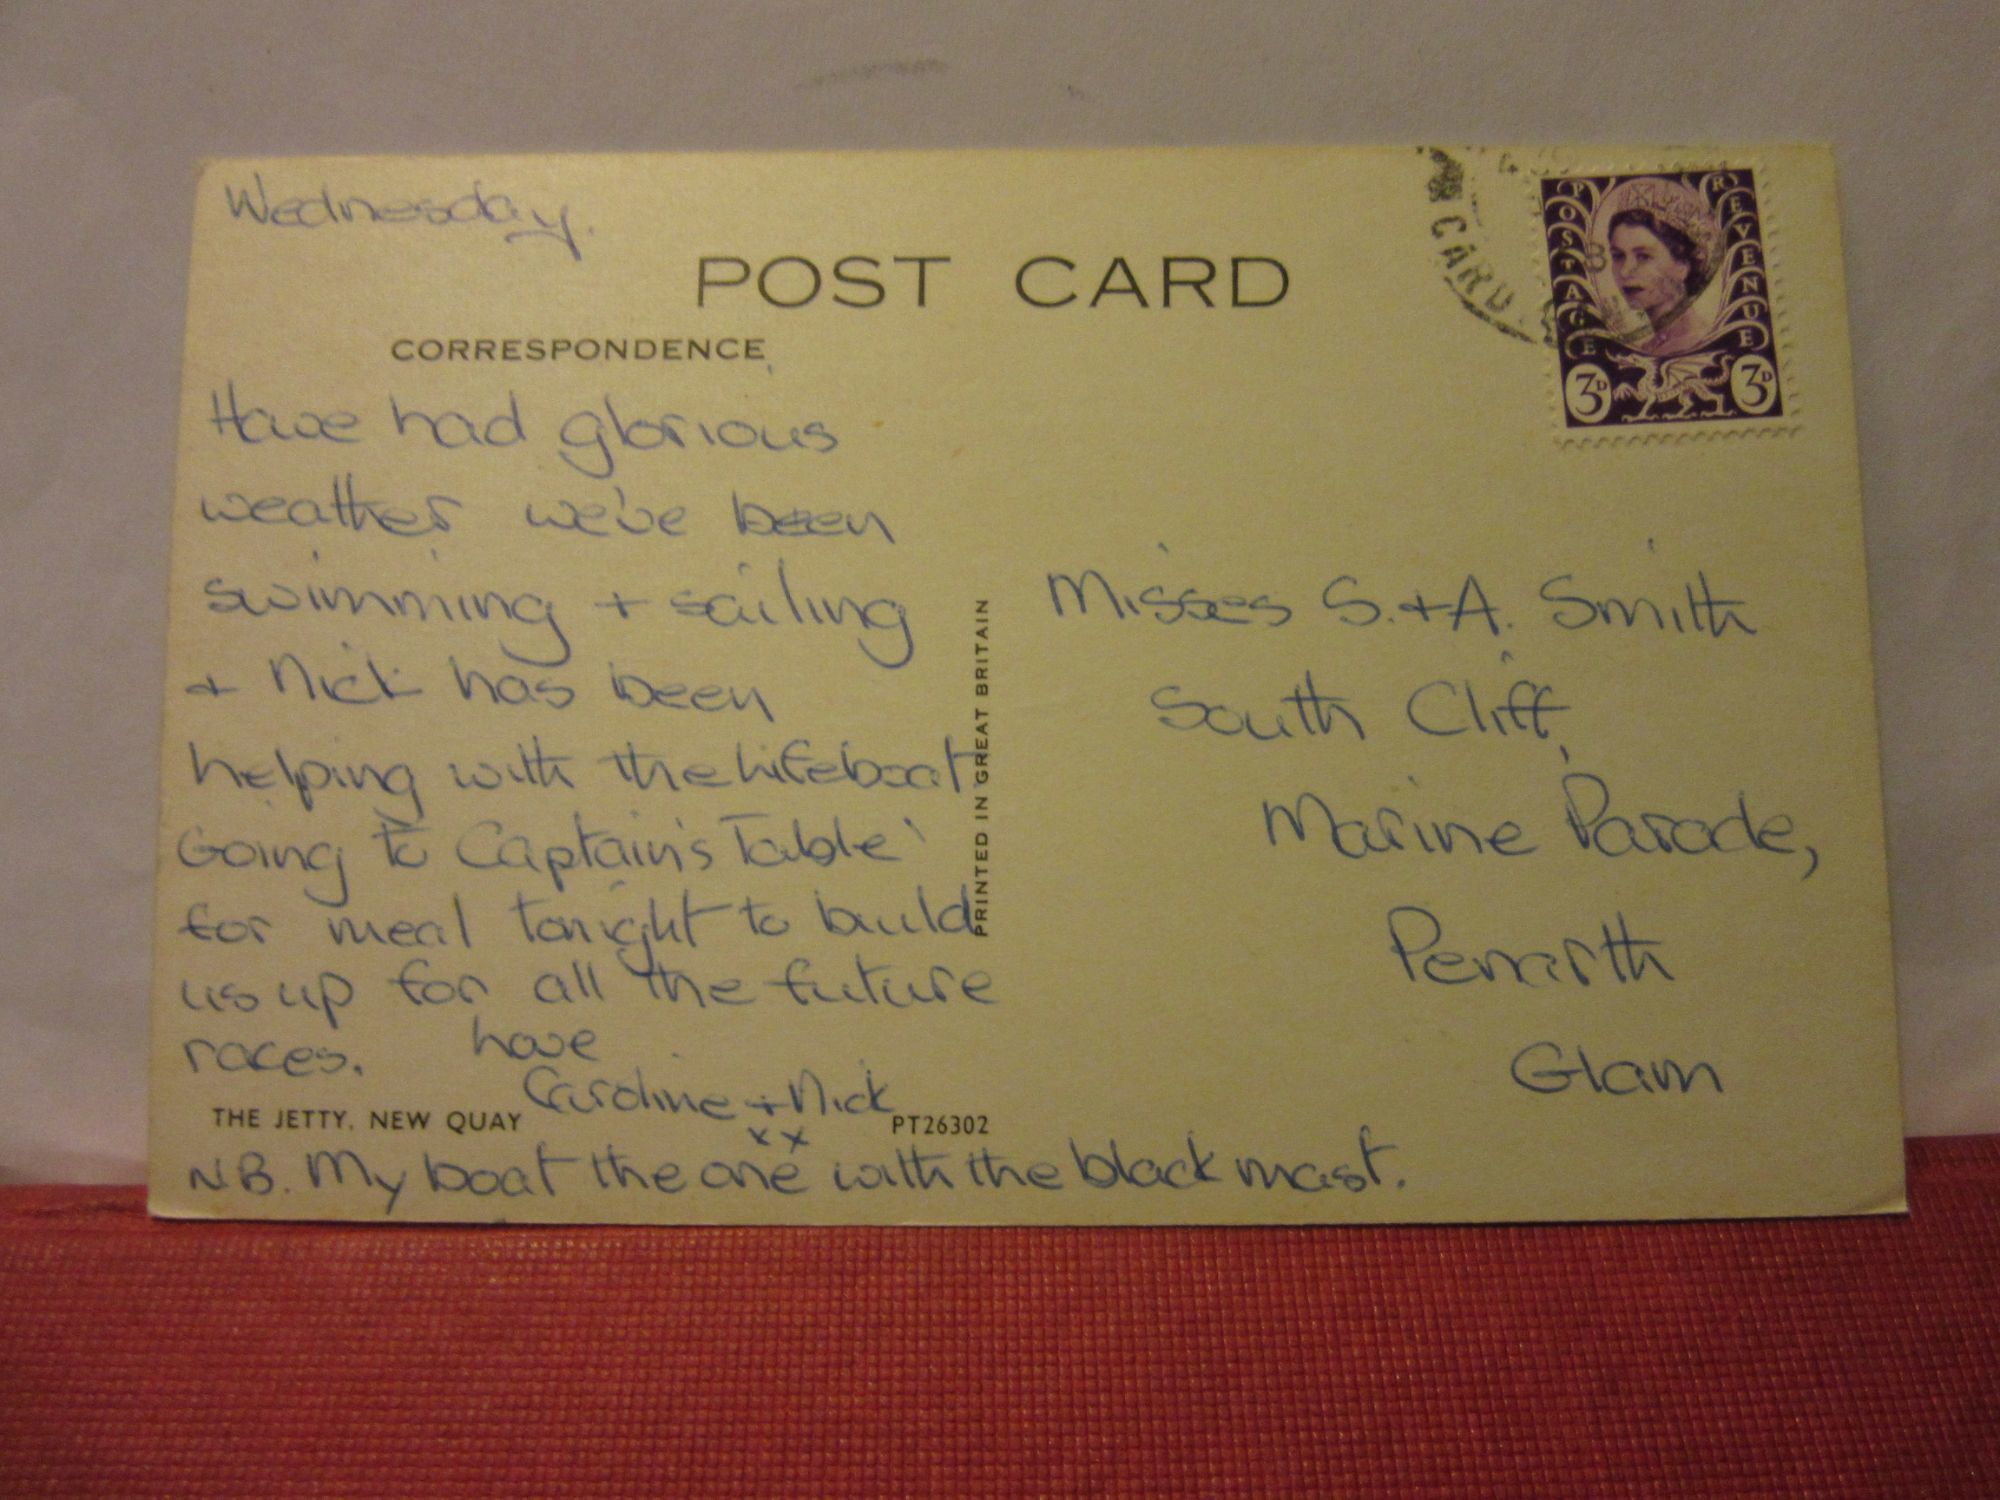 Wednesday.
POST CARD
CORRESPONDENCE
Have had glorious
weather we've been
swimming + sailing
+ Nick has been
helping with the lifeboat
Going to Captain's Table'
for meal tonight to build
us up for all the future
races. love
Caroline + Nick
x x
THE JETTY, NEW QUAY
PT26302
N.B. My boat the one with the black mast.
PRINTED IN GREAT BRITAIN
CARD
POSTAGE REVENUE
3D 3D
Misses S. + A. Smith
South Cliff,
Marine Parade,
Penarth
Glam